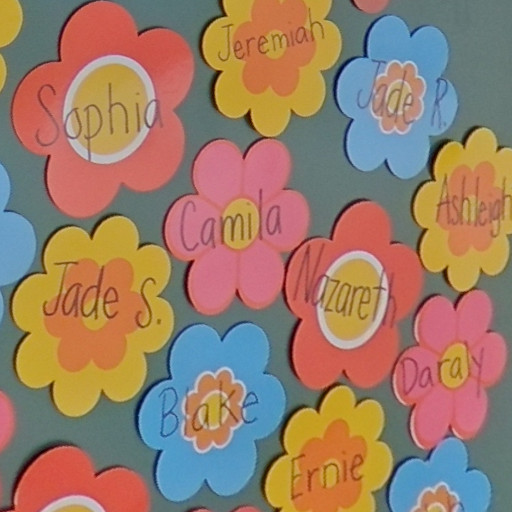 Jeremiah
Sophia
Jade R.
Ashleigh
Camila
Nazareth
Jade S.
Daraly
Blake
Ernie